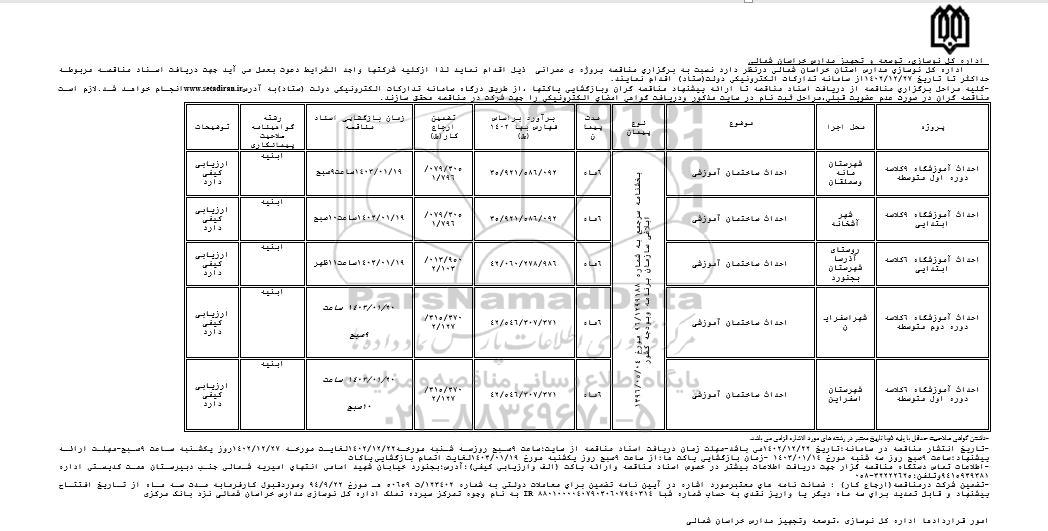 اداره کل نوسازی، توسعه و تجهیز مدارس خراسان شمالی
اداره کل نوسازی مدارس استان خراسان شمالی درنظر دارد نسبت به برگزاري مناقصه پروژه ی عمرانی ذیل اقدام نماید لذا ازکلیه شرکتها واجد الشرایط دعوت بعمل می آید جهت دریافت اسناد مناقصه مربوطه
حداکثر تا تاریخ ۱۴۰۲/۱۲/۲۷از سامانه تدارکات الکترونیکی دولت(ستاد) اقدام نمایند.
-کلیه مراحل برگزاري مناقصه از دریافت اسناد مناقصه تا ارائه پیشنهاد مناقصه گران وبازگشایی پاکتها ،از طریق درگاه سامانه تدارکات الکترونیکی دولت (ستاد)به آدرسwww.setadiran.irانجام خواهد شد.لازم است
مناقصه گران در صورت عدم عضویت قبلی،مراحل ثبت نام در سایت مذکور ودریافت گواهی امضای الکترونیکی را جهت شرکت در مناقصه محقق سازند.
پروژه محل اجرا موضوع نوع پیمان مدت پیمان برآورد براساس فهارس بها ۱۴۰۲ (ریال) تضمین ارجاع کار(ریال) زمان بازگشایی اسناد مناقصه رشته گواهینامه صلاحیت پیمانکاری توضیحات
احداث آموزشگاه ۹کلاسه دوره اول متوسطه شهرستان مانه وسملقان احداث ساختمان آموزشی ۶ماه ۳۵/۹۲۱/۵۸۶/۰۹۲ ۱/۷۹۶/۰۷۹/۳۰۵ ۱۴۰۳/۰۱/۱۹ساعت۹صبح ابنیه ارزیابی کیفی دارد
احداث آموزشگاه ۹کلاسه ابتدایی شهر آشخانه احداث ساختمان آموزشی ۶ماه ۳۵/۹۲۱/۵۸۶/۰۹۲ ۱/۷۹۶/۰۷۹/۳۰۵ ۱۴۰۳/۰۱/۱۹ساعت۱۰صبح ابنیه ارزیابی کیفی دارد
احداث آموزشگاه ۶کلاسه ابتدایی روستای آذرسا شهرستان بجنورد احداث ساختمان آموزشی ۶ماه ۴۲/۰۶۰/۲۷۸/۹۸۶ ۲/۱۰۳/۰۱۳/۹۵۰ ۱۴۰۳/۰۱/۱۹ساعت۱۱ظهر ابنیه ارزیابی کیفی دارد
احداث آموزشگاه ۶کلاسه دوره دوم متوسطه شهراسفراین احداث ساختمان آموزشی ۶ماه ۴۲/۵۴۶/۳۰۷/۳۷۱ ۲/۱۲۷/۳۱۵/۳۷۰ ۱۴۰۳/۰۱/۲۰ ساعت ۹صبح ابنیه ارزیابی کیفی دارد
احداث آموزشگاه ۶کلاسه دوره اول متوسطه شهرستان اسفراین احداث ساختمان آموزشی ۶ماه ۴۲/۵۴۶/۳۰۷/۳۷۱ ۲/۱۲۷/۳۱۵/۳۷۰ ۱۴۰۳/۰۱/۲۰ ساعت ۱۰صبح ابنیه ارزیابی کیفی دارد
بخشنامه سرجمع به شماره ۹۶/۱۲۹۹۱۸۸ مورخ ۱۳۹۶/۰۵/۰۴
ابلاغی سازمان برنامه وبودجه کشور
ParsNamadData
مرکز فرآوری اطلاعات پارس نماد داده ها
پایگاه اطلاع رسانی مناقصه و مزایده
۰۲۱-۸۸۳۴۹۶۷۰-۵
-داشتن گواهی صلاحیت حداقل با پایه ۵وباتاریخ معتبر در رشته های مورد اشاره الزامی می باشد.
-تاریخ انتشار مناقصه در سامانه:تاریخ ۱۴۰۲/۱۲/۲۲می باشد-مهلت زمان دریافت اسناد مناقصه از سایت:ساعت ۹صبح روزسه شنبه مورخه۱۴۰۲/۱۲/۲۲لغایت مورخه ۱۴۰۲/۱۲/۲۷روز یکشنبه ساعت ۹صبح-مهلت ارائه
پیشنهاد:ساعت ۹صبح روز سه شنبه مورخ ۱۴۰۳/۰۱/۱۴ -زمان بازگشایی پاکت ها:از ساعت ۹صبح روز یکشنبه مورخ ۱۴۰۳/۰۱/۱۹لغایت اتمام بازگشایی پاکات
-اطلاعات تماس دستگاه مناقصه گزار جهت دریافت اطلاعات بیشتر در خصوص اسناد مناقصه وارائه پاکت (الف وارزیابی کیفی):آدرس:بجنورد خیابان شهید امامی انتهای امیریه شمالی جنب دبیرستان همت کدپستی اداره
۹۴۱۵۹۳۹۳۸۱وتلفن:۳۲۲۲۲۶۲۵-۰۵۸
-تضمین شرکت درمناقصه(ارجاع کار) : ضمانت نامه های معتبرمورد اشاره در آیین نامه تضمین برای معاملات دولتی به شماره ۱۲۳۴۰۲/ت ۵۰۶۵۹ هـ مورخ ۹۴/۹/۲۲ وموردقبول کارفرمابه مدت سه ماه از تاریخ افتتاح
پیشنهاد و قابل تمدید برای سه ماه دیگر یا واریز نقدی به حساب شماره شبا IR ۸۸۰۱۰۰۰۰۴۰۷۹۰۳۰۶۰۷۹۴۰۳۱۴ به نام وجوه تمرکز سپرده تملک اداره کل نوسازی مدارس خراسان شمالی نزد بانک مرکزی
امور قراردادها اداره کل نوسازی ،توسعه وتجهیز مدارس خراسان شمالی